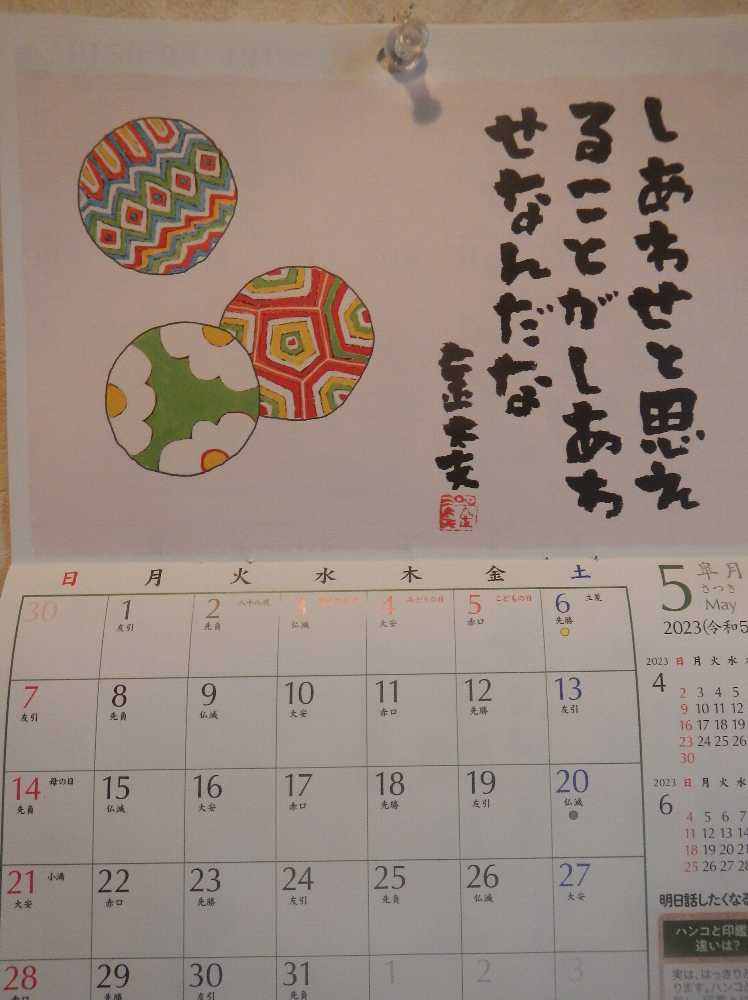 しあわせと思え
ることがしあわ
せなんだな
日 月 火 水 木 金 土
30 1 2 八十八夜 3 4 みどりの日 5 こどもの日 6 立夏
友引 先負 仏滅 大安 赤口 先勝
7 8 9 10 11 12 13
友引 先負 仏滅 大安 赤口 先勝 友引
14 母の日 15 16 17 18 19 20
先負 仏滅 大安 赤口 先勝 友引 仏滅
21 小満 22 23 24 25 26 27
大安 赤口 先勝 友引 先負 仏滅 大安
28 29 30 31 1 2 3
赤口 先勝 友引 先負
5 皐月
さつき
May
2023(令和5
2023 日 月 火 水
4
2 3 4 5
9 10 11 12
16 17 18 19
23 24 25 26
30
2023 日 月 火 水
6
4 5 6 7
11 12 13 14
18 19 20 21
25 26 27 28
明日話したくなる
ハンコと印鑑
違いは?
実は、はっきりと
ります。ハンコ